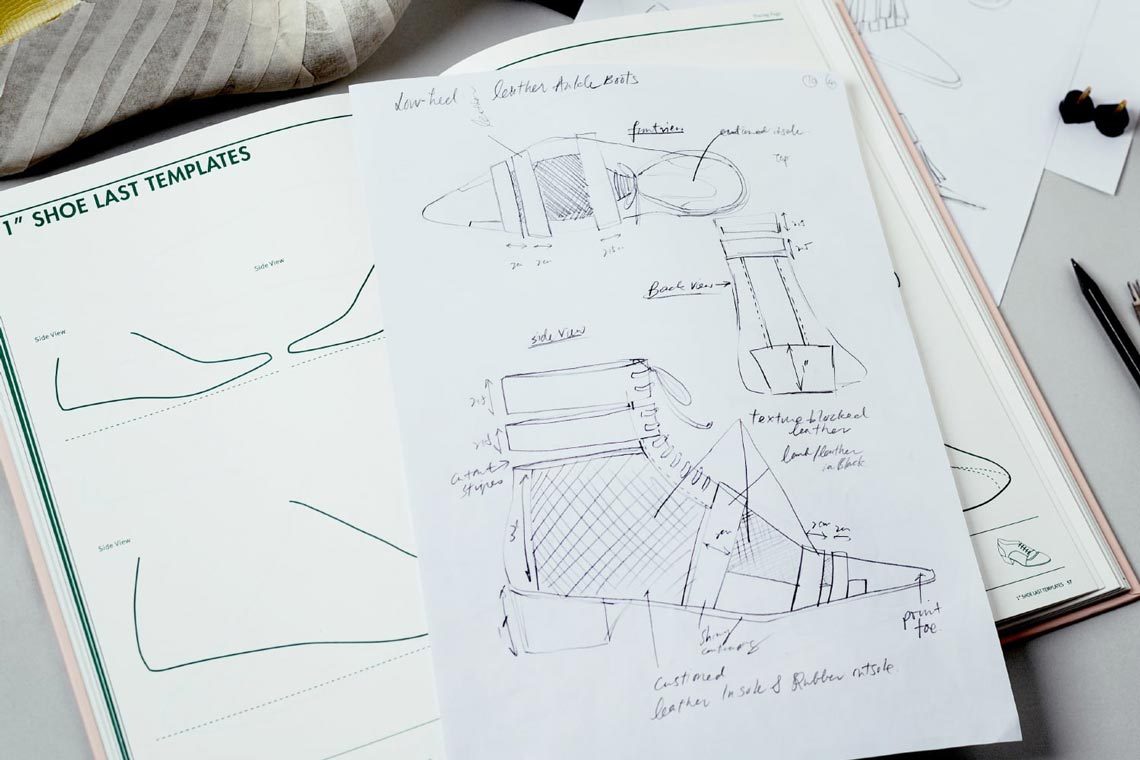 1" SHOE LAST TEMPLATES
Side View
Side View
Side View
Low-heel leather Ankle Boots
front view
Top
2cm 2cm
2.5
2.5
Back view
1"
side view
2.5
cutout
stripes
texture blocked
leather
leather
in Black
2cm 2cm
point
toe
customed
leather Insole & Rubber outsole.
1" SHOE LAST TEMPLATES 57